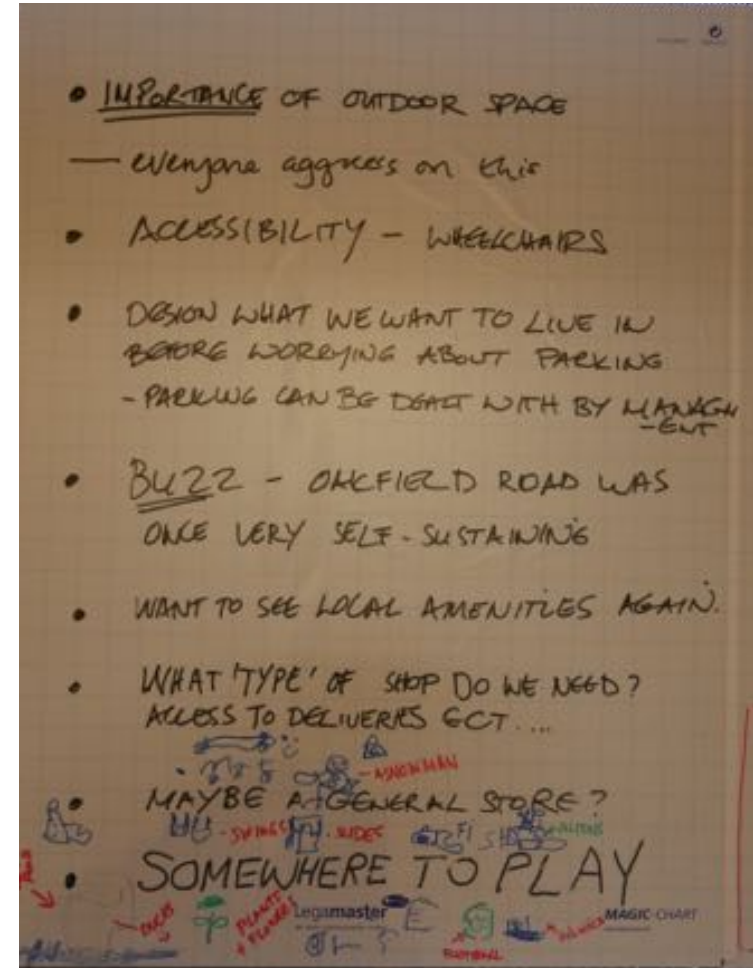 • IMPORTANCE OF OUTDOOR SPACE
— everyone aggrees on this
• ACCESSIBILITY - WHEELCHAIRS
• DESIGN WHAT WE WANT TO LIVE IN
BEFORE WORRYING ABOUT PARKING
- PARKING CAN BE DEALT WITH BY MANAGM
-ENT
• BUZZ - OAKFIELD ROAD WAS
ONCE VERY SELF-SUSTAINING
• WANT TO SEE LOCAL AMENITIES AGAIN.
• WHAT 'TYPE' OF SHOP DO WE NEED?
ACCESS TO DELIVERIES ECT....
- A SNOWMAN
• MAYBE A GENERAL STORE?
- SWINGS - SLIDES ALIENS
• SOMEWHERE TO PLAY
DUCKS PLANTS + FLOWERS
Legamaster MAGIC-CHART
FOOTBALL